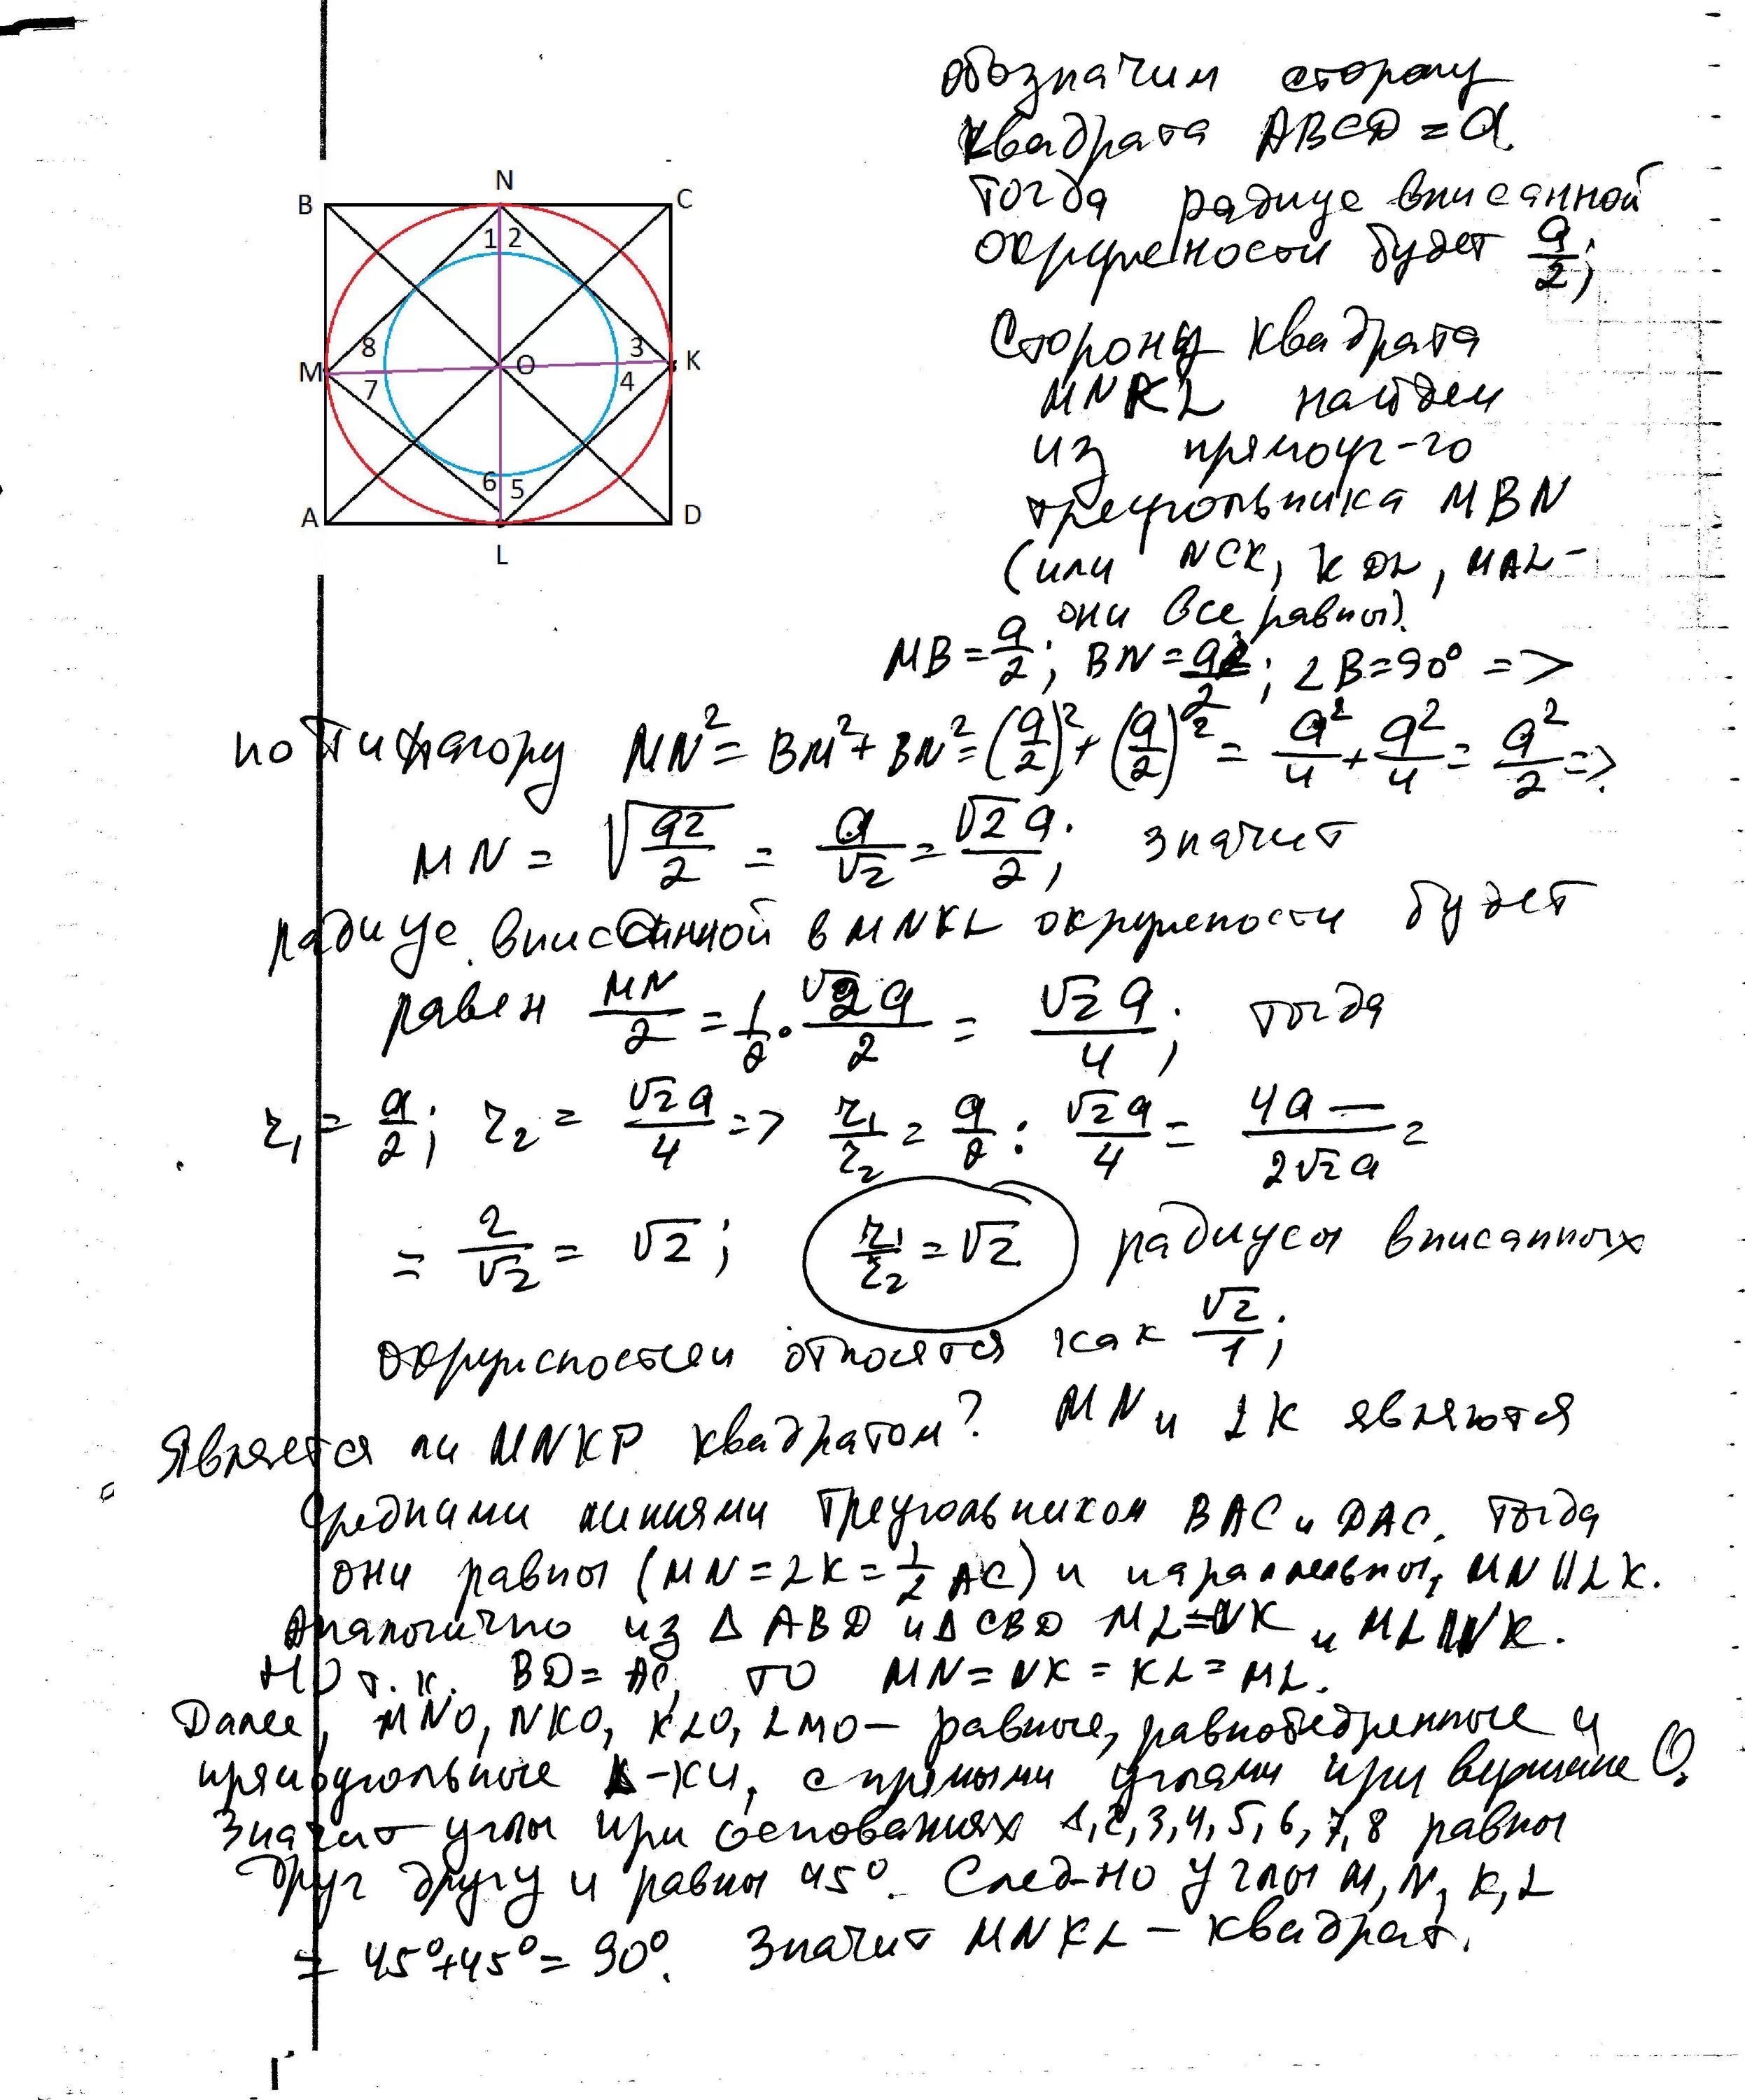 B N C
1 2
8 3
M O K
7 4
6 5
A D
L
обозначим сторону
квадрата ABCD = a.
тогда радиус вписанной
окружности будет a/2;
Сторону квадрата
MNKL найдем
из прямоуг-го
треугольника MBN
(или NCK, KDL, MAL -
они все равны).
MB = a/2; BN = a/2; ∠B = 90° =>
по Пифагору MN² = BM² + BN² = (a/2)² + (a/2)² = a²/4 + a²/4 = a²/2 =>
MN = √(a²/2) = a/√2 = √2a/2; значит
радиус вписанной в MNKL окружности будет
равен MN/2 = 1/2 · √2a/2 = √2a/4; тогда
r₁ = a/2; r₂ = √2a/4 => r₁/r₂ = a/2 : √2a/4 = 4a/2√2a =
= 2/√2 = √2; r₁/r₂ = √2 радиусы вписанных
окружностей относятся как √2/1;
Является ли MNKP квадратом? MN и LK являются
средними линиями треугольников BAC и DAC. Тогда
они равны (MN = LK = 1/2 AC) и параллельны, MN || LK.
Аналогично из Δ ABD и Δ CBD ML = NK и ML || NK.
Но т.к. BD = AC, то MN = NK = KL = ML.
Далее, MNO, NKO, KLO, LMO – равные, равнобедренные и
прямоугольные Δ-ки, с прямыми углами при вершине O.
Значит углы при основаниях 1, 2, 3, 4, 5, 6, 7, 8 равны
друг другу и равны 45°. След-но углы M, N, K, L
= 45° + 45° = 90°. Значит MNKL – квадрат.